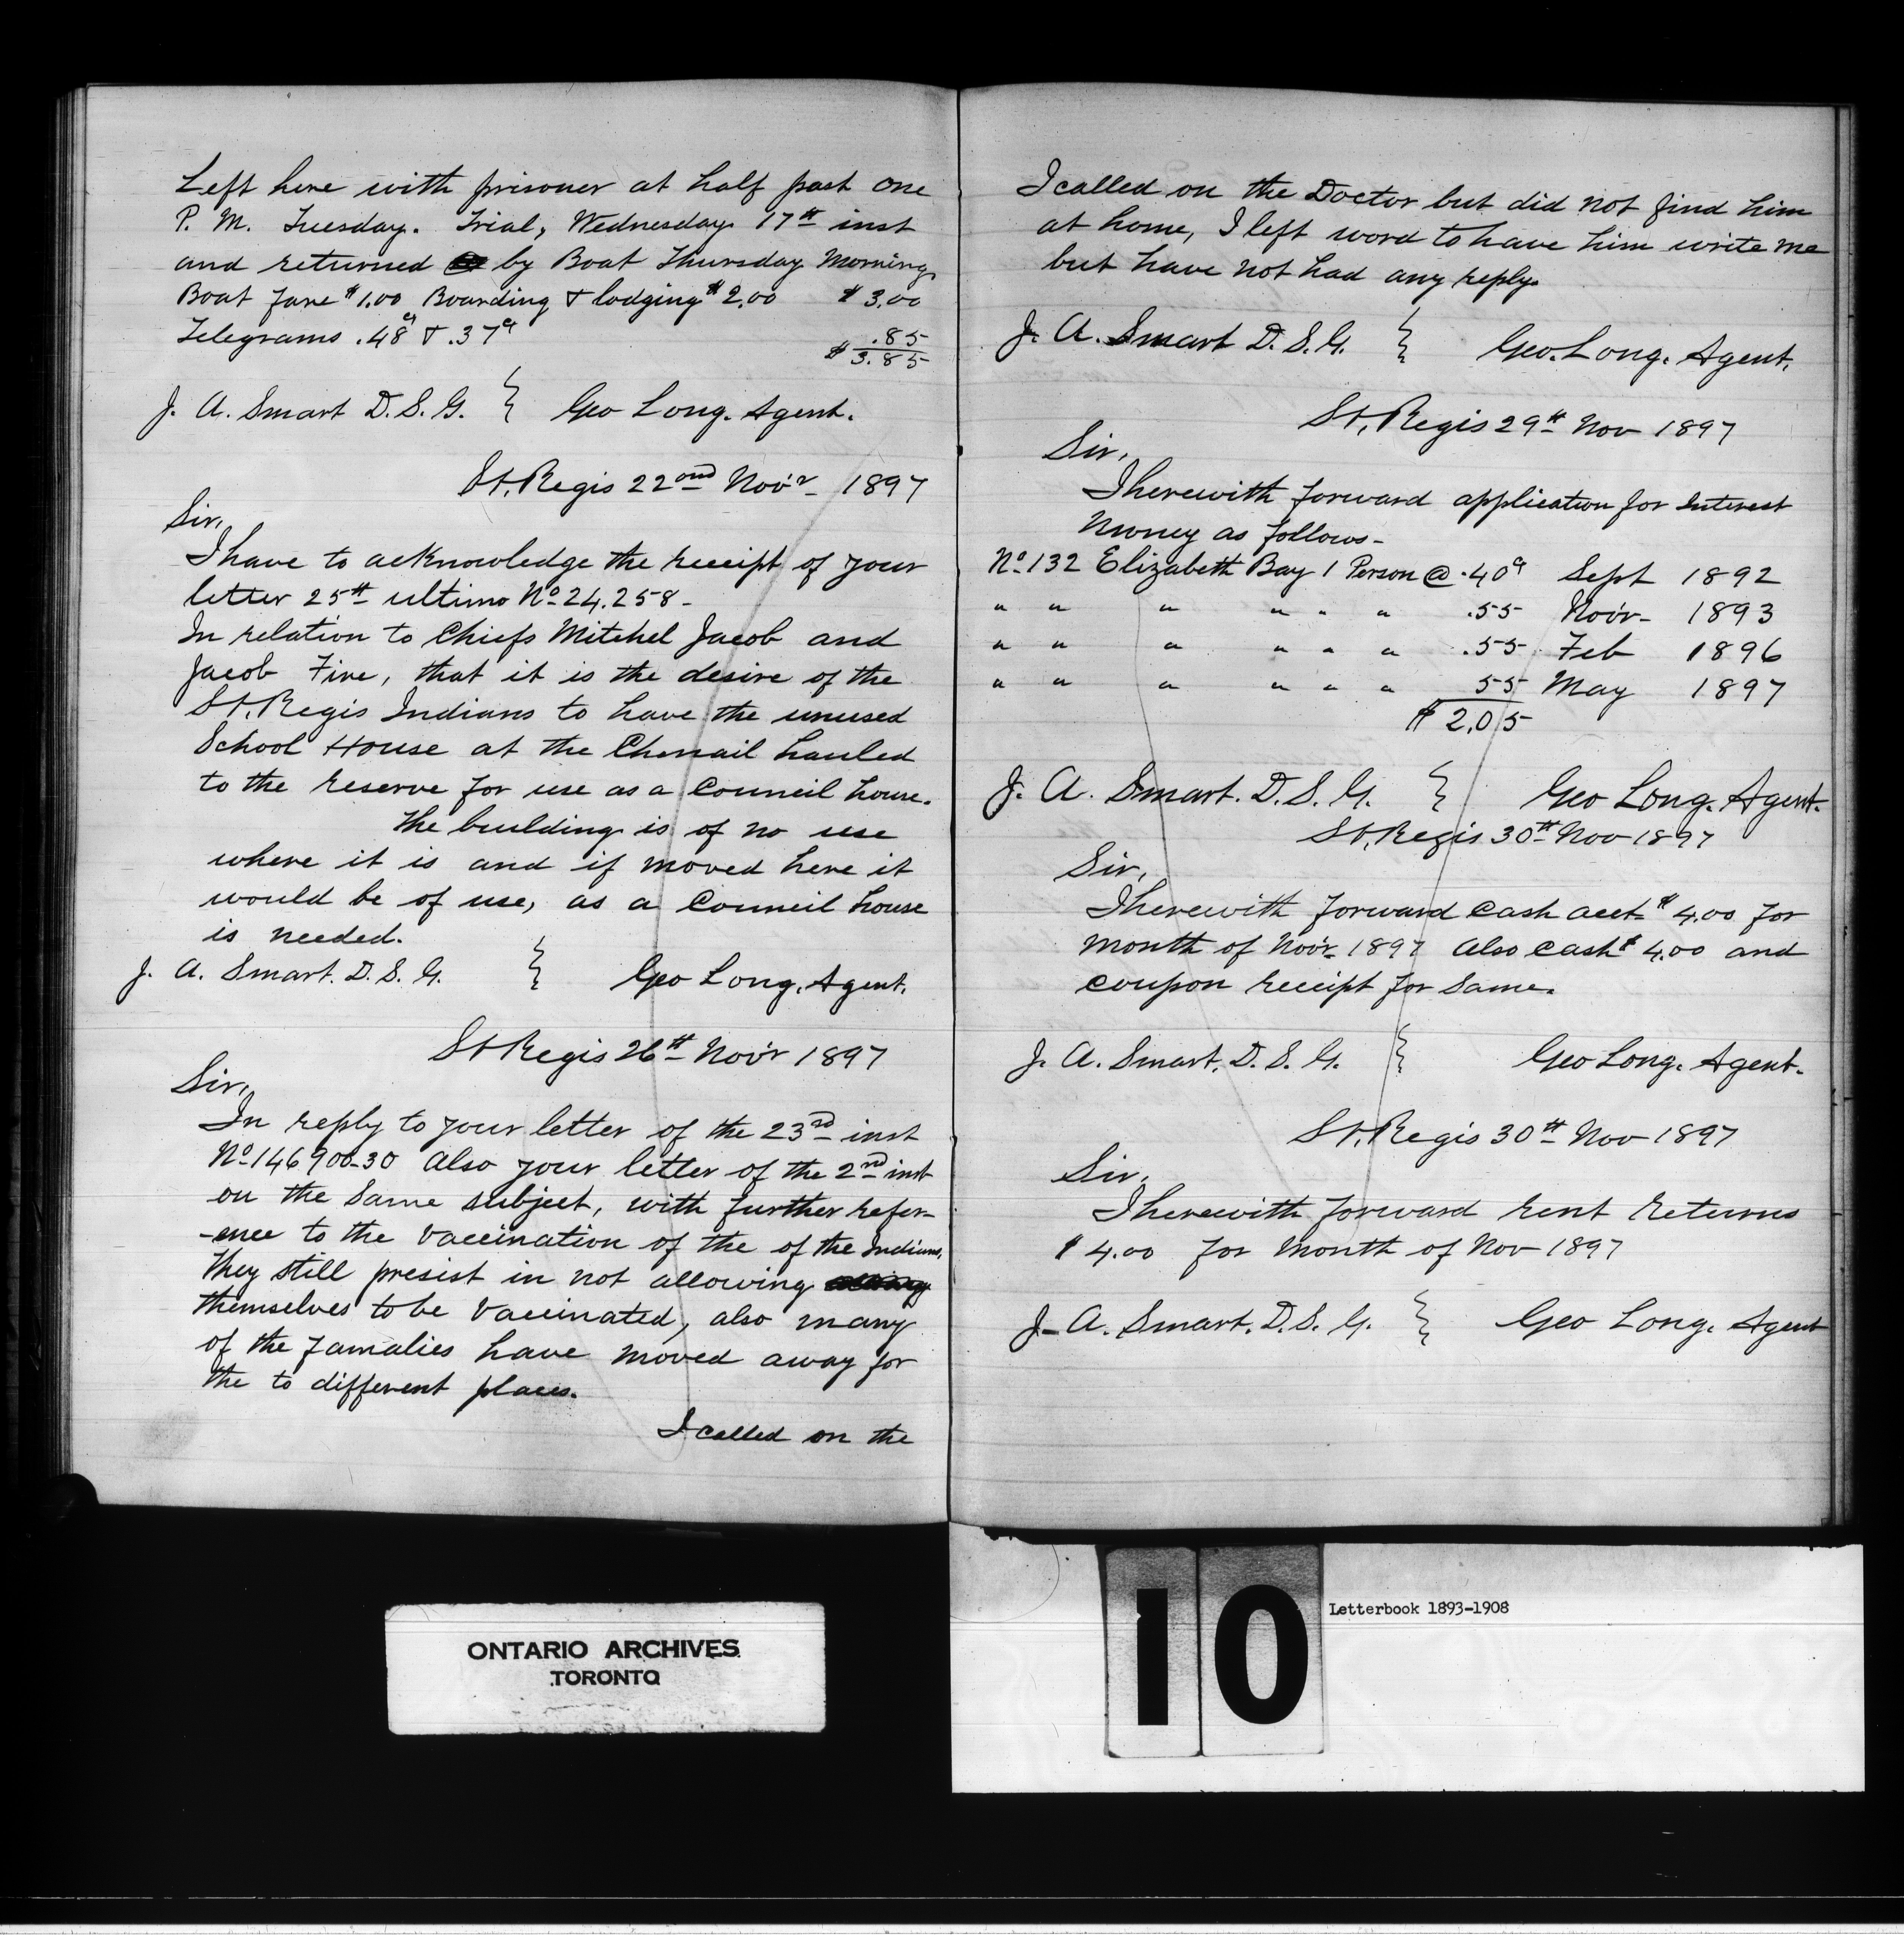 Left here with prisoner at half past one
P. M. Tuesday. Trial, Wednesday 17th inst
and returned by Boat Thursday Morning
Boat Fare $1.00 Boarding & lodging $2.00 $3.00
Telegrams .48cts & .37cts .85
$3.85
J. A. Smart D. S. G. } Geo Long. Agent.
St. Regis 22ond Nov'r 1897
Sir,
I have to acknowledge the receipt of your
letter 25th ultimo No 24.258-
In relation to Chiefs Mitchel Jacob and
Jacob Fire, that it is the desire of the
St. Regis Indians to have the unused
School House at the Chenail hauled
to the reserve for use as a Council house.
The building is of no use
where it is and if moved here it
would be of use, as a Council house
is needed.
J. A. Smart. D. S. G. } Geo Long. Agent.
St Regis 26th Nov'r 1897
Sir,
In reply to your letter of the 23rd inst
No 146900-30 Also your letter of the 2nd inst
on the Same subject, with further refer-
-ence to the Vaccination of the of the Indians,
They still presist in not allowing
themselves to be Vaccinated, also many
of the Famalies have moved away for
the to different places.
I called on the
I called on the Doctor but did not find him
at home, I left word to have him write me
but have not had any reply.
J. A. Smart D. S. G. } Geo. Long. Agent.
St. Regis 29th Nov 1897
Sir,
I herewith forward application for Interest
Money as follows-
No 132 Elizabeth Bay 1 Person @ .40cts Sept 1892
" " " " " " .55 Nov'r 1893
" " " " " " .55 Feb 1896
" " " " " " 55 May 1897
$2.05
J. A. Smart. D. S. G. } Geo Long. Agent.
St. Regis 30th Nov 1897
Sir,
I herewith forward Cash acct $4.00 for
Month of Nov'r 1897 Also Cash $4.00 and
Coupon receipt for Same.
J. A. Smart. D. S. G. } Geo Long. Agent.
St. Regis 30th Nov 1897
Sir,
I herewith forward rent returns
$4.00 for Month of Nov 1897
J. A. Smart. D. S. G. } Geo Long. Agent
10
Letterbook 1893-1908
ONTARIO ARCHIVES
TORONTO